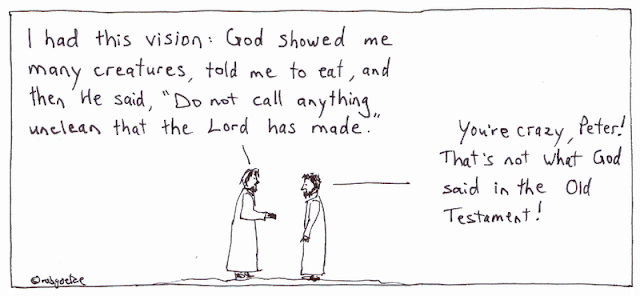 I had this vision: God showed me
many creatures, told me to eat, and
then He said, "Do not call anything
unclean that the Lord has made."
You're crazy, Peter!
That's not what God
said in the Old
Testament!